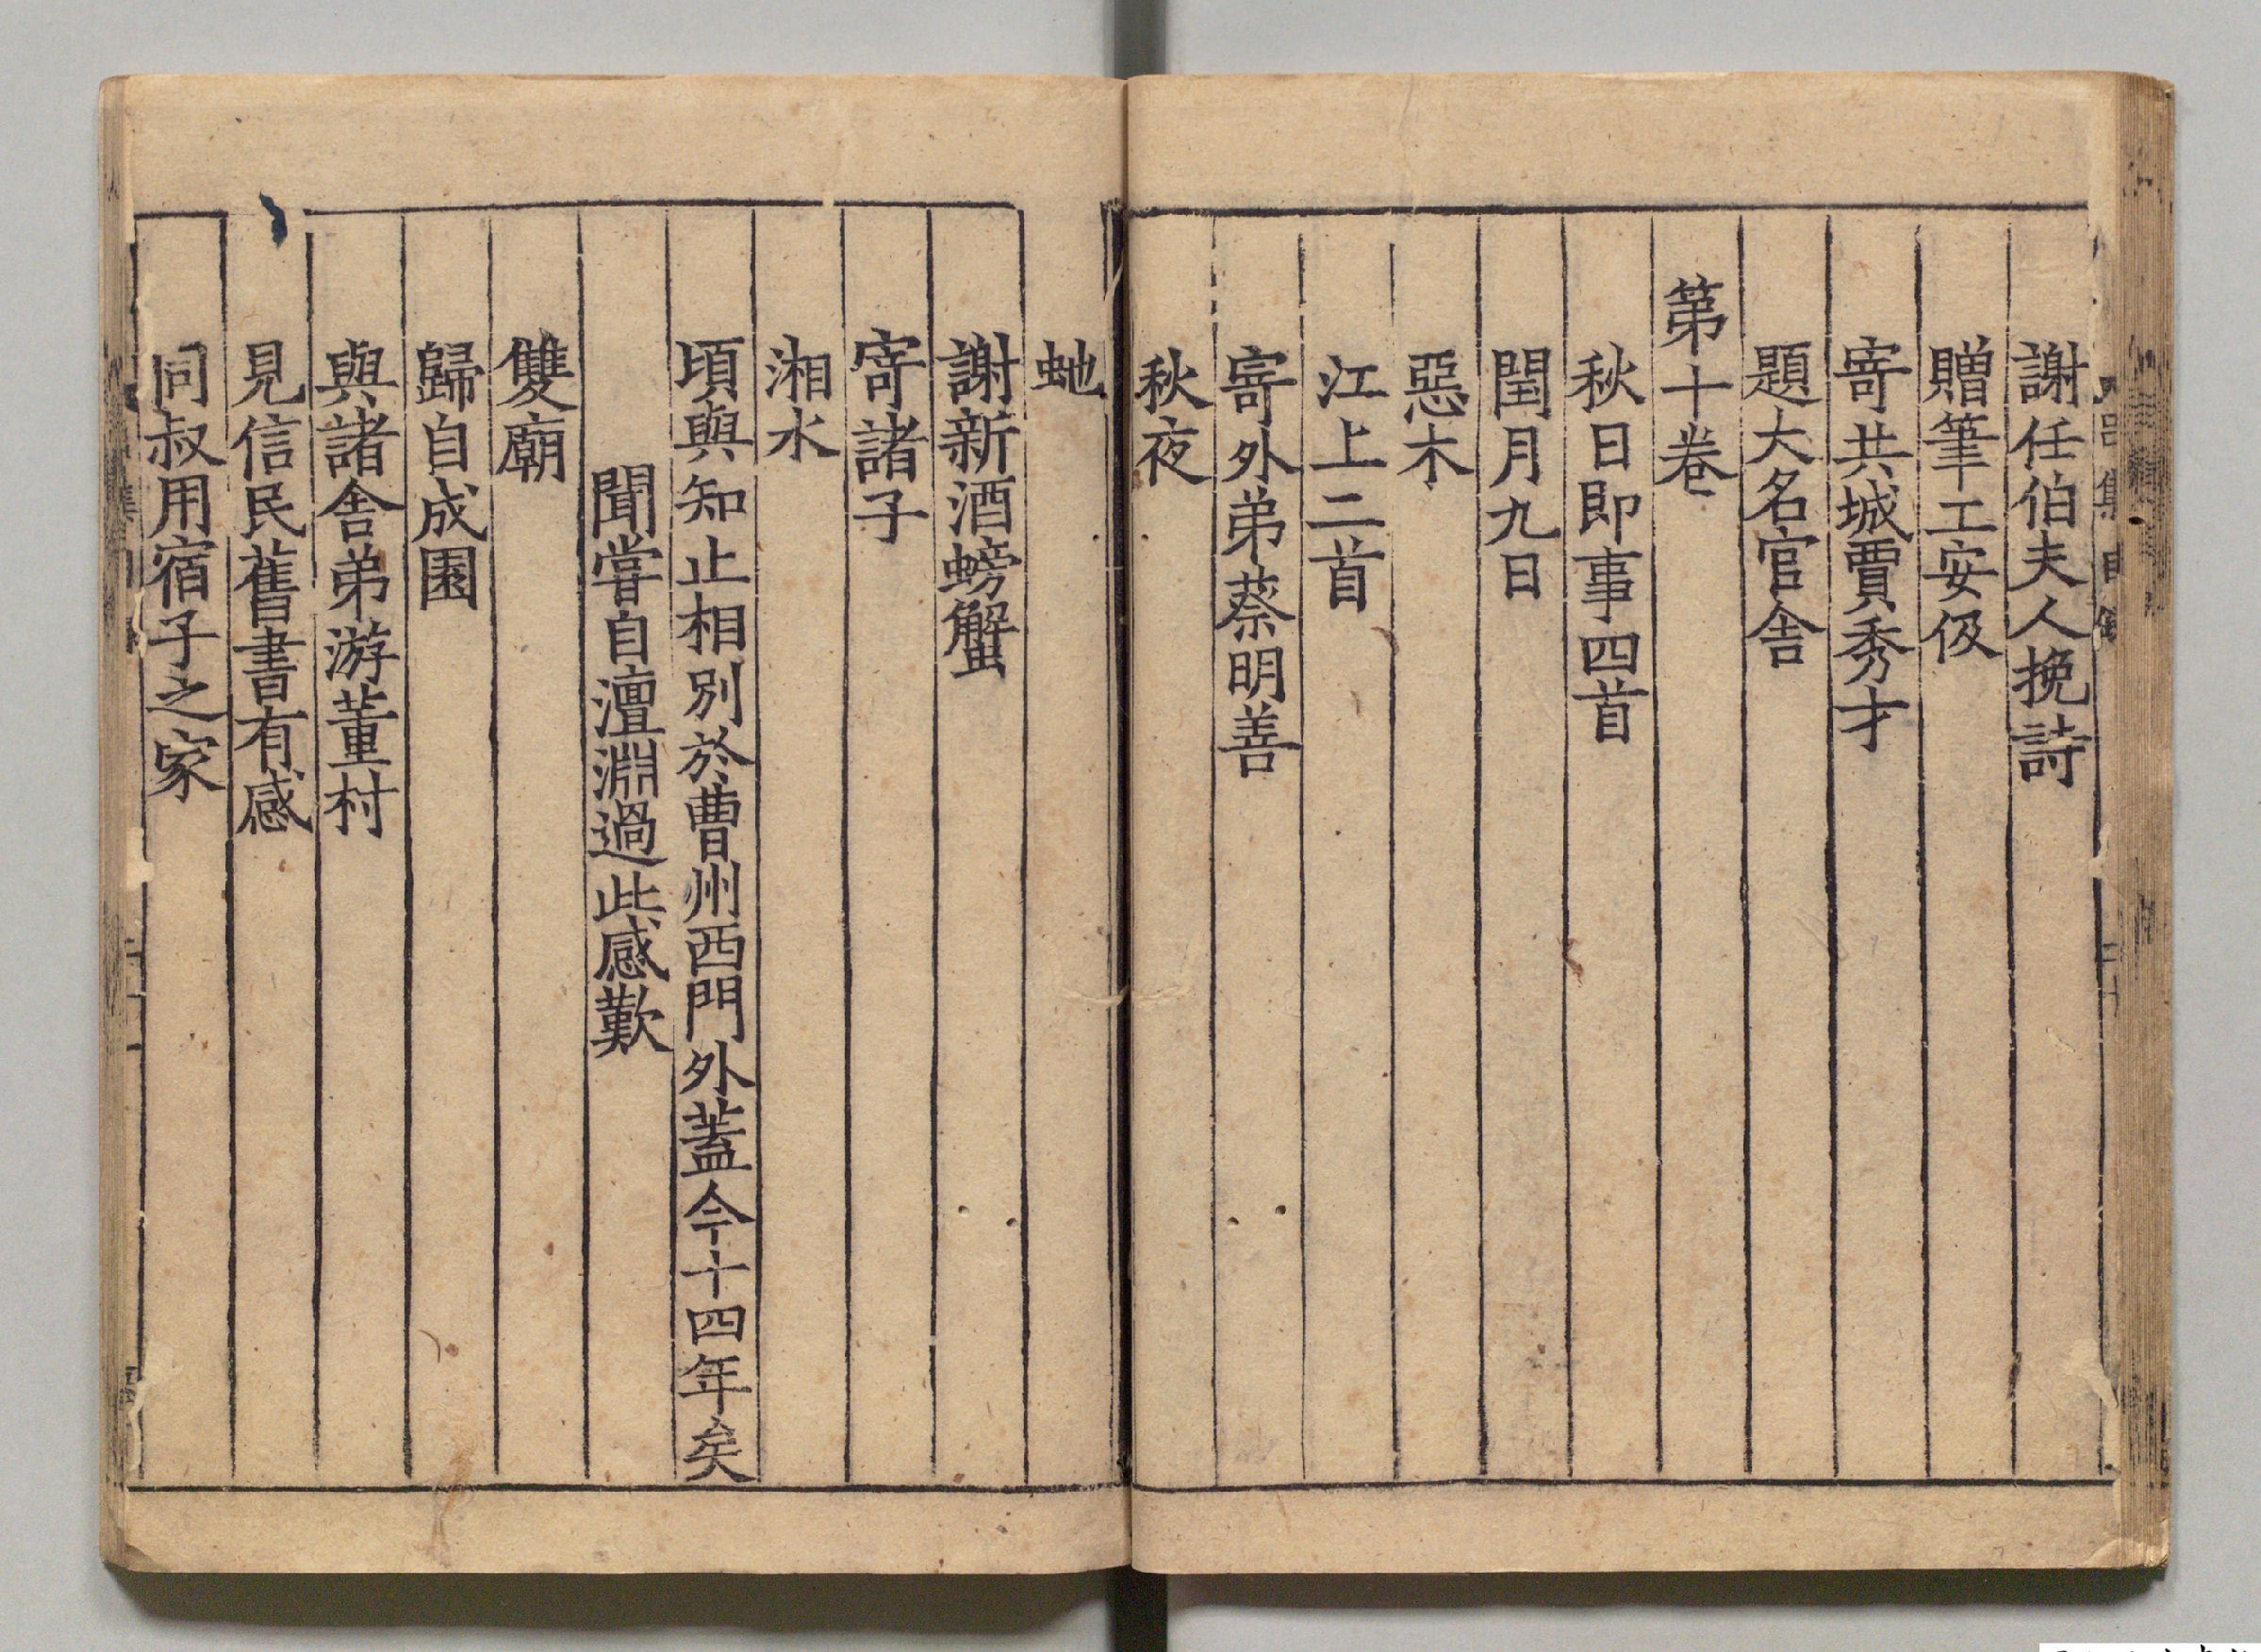 謝任伯夫人挽詩
贈筆工安伋
寄共城賈秀才
題大名官舎
第十卷
秋日即事四首
閏月九日
惡木
江上二首
寄外弟蔡明善
秋夜
虵
謝新酒螃蟹
寄諸子
湘水
頃與知止相別於曹州西門外蓋今十四年矣
聞嘗自澶淵過此感歎
雙廟
歸自成園
與諸舎弟游董村
見信民舊書有感
同叔用宿子之家